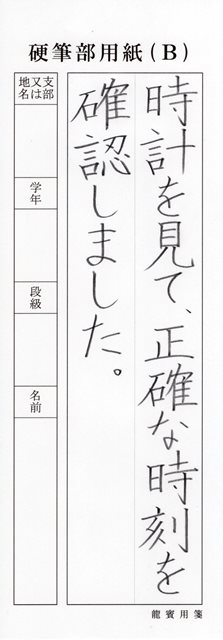 硬筆部用紙(B)
時計を見て、正確な時刻を
確認しました。
支部
又は
地名
学年
段級
名前
龍賓用箋